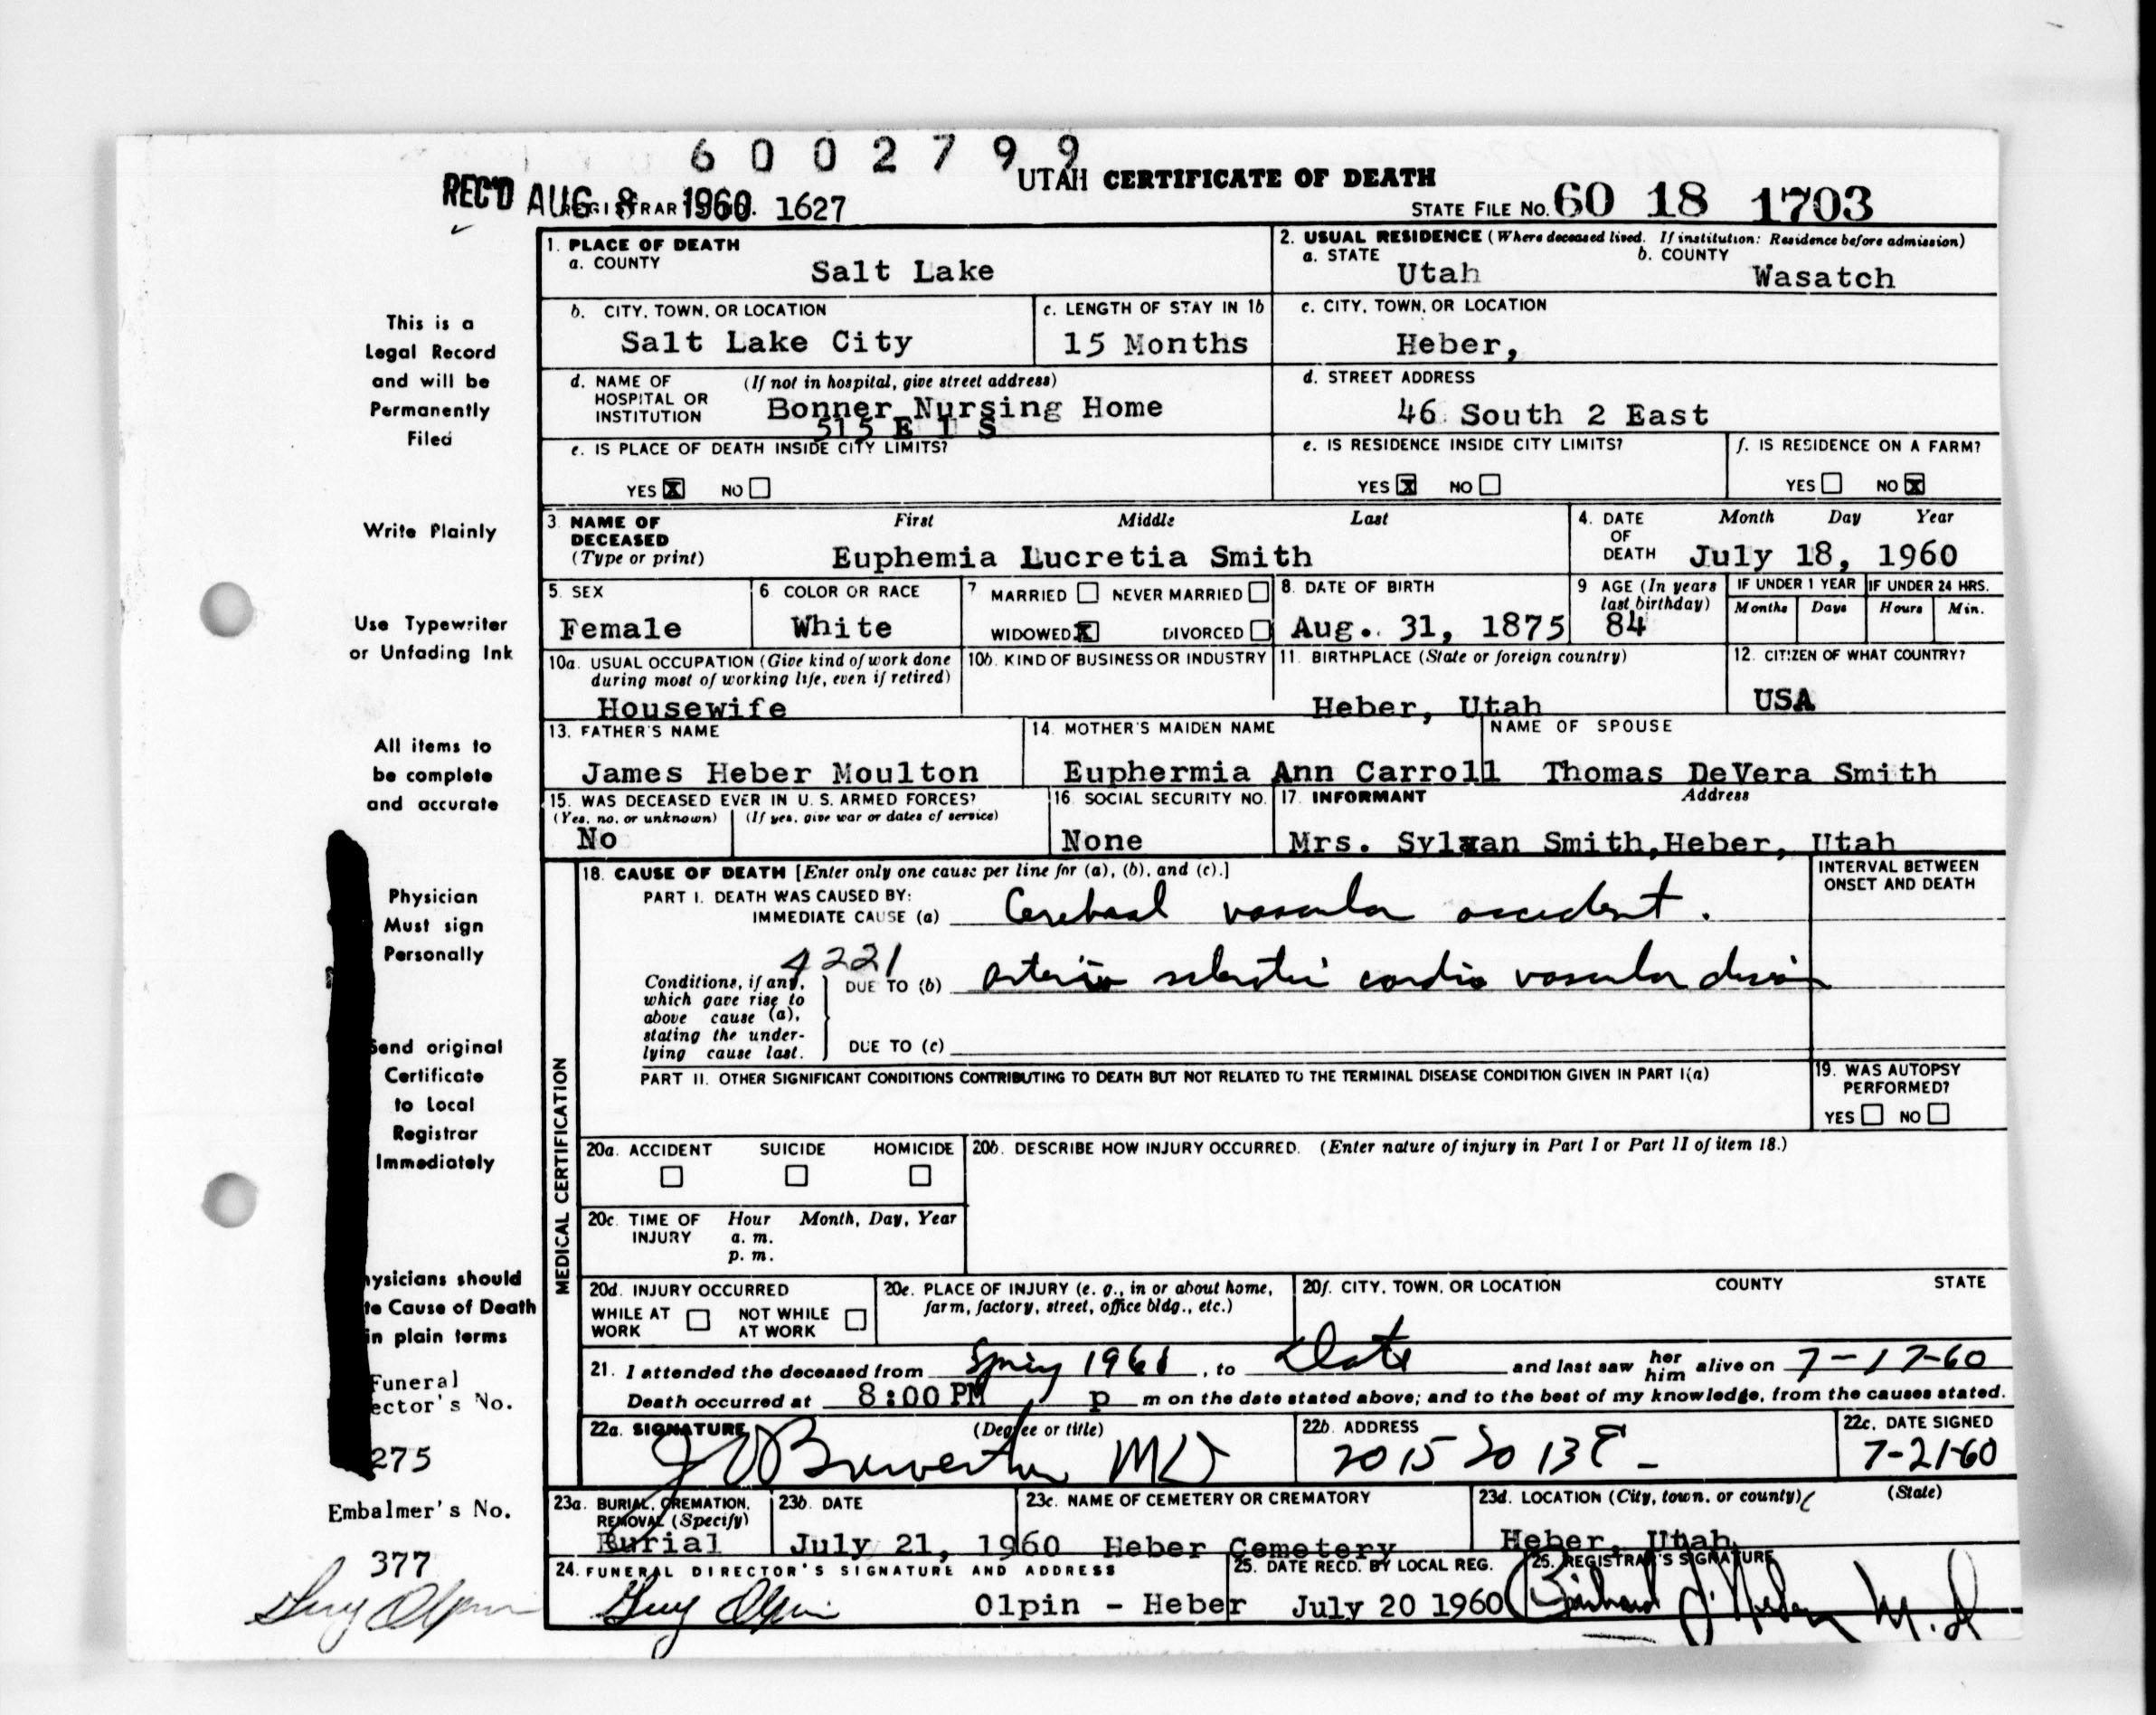 6 0 0 2 7 9 9
UTAH CERTIFICATE OF DEATH
REC'D AUG 8 1960 1627
STATE FILE NO. 60 18 1703
1. PLACE OF DEATH
a. COUNTY
Salt Lake
2. USUAL RESIDENCE (Where deceased lived. If institution: Residence before admission)
a. STATE Utah b. COUNTY Wasatch
b. CITY, TOWN, OR LOCATION
Salt Lake City
c. LENGTH OF STAY IN 1b
15 Months
c. CITY, TOWN, OR LOCATION
Heber,
d. NAME OF HOSPITAL OR INSTITUTION (If not in hospital, give street address)
Bonner Nursing Home
515 E 1 S
d. STREET ADDRESS
46 South 2 East
e. IS PLACE OF DEATH INSIDE CITY LIMITS?
YES X NO
e. IS RESIDENCE INSIDE CITY LIMITS?
YES X NO
f. IS RESIDENCE ON A FARM?
YES NO X
3. NAME OF DECEASED (Type or print)
First Middle Last
Euphemia Lucretia Smith
4. DATE OF DEATH
Month Day Year
July 18, 1960
5. SEX
Female
6. COLOR OR RACE
White
7. MARRIED NEVER MARRIED
WIDOWED X DIVORCED
8. DATE OF BIRTH
Aug. 31, 1875
9 AGE (In years last birthday)
84
IF UNDER 1 YEAR
Months Days
IF UNDER 24 HRS.
Hours Min.
10a. USUAL OCCUPATION (Give kind of work done during most of working life, even if retired)
Housewife
10b. KIND OF BUSINESS OR INDUSTRY
11. BIRTHPLACE (State or foreign country)
Heber, Utah
12. CITIZEN OF WHAT COUNTRY?
USA
13. FATHER'S NAME
James Heber Moulton
14. MOTHER'S MAIDEN NAME
Euphermia Ann Carroll
NAME OF SPOUSE
Thomas DeVera Smith
15. WAS DECEASED EVER IN U. S. ARMED FORCES?
(Yes, no, or unknown) (If yes, give war or dates of service)
No
16. SOCIAL SECURITY NO.
None
17. INFORMANT Address
Mrs. Sylvan Smith, Heber, Utah
18. CAUSE OF DEATH [Enter only one cause per line for (a), (b), and (c).]
INTERVAL BETWEEN ONSET AND DEATH
PART I. DEATH WAS CAUSED BY:
IMMEDIATE CAUSE (a) Cerebral vascular accident.
4221
Conditions, if any, which gave rise to above cause (a), stating the underlying cause last.
DUE TO (b) arterio sclerotic cardio vascular
DUE TO (c)
PART II. OTHER SIGNIFICANT CONDITIONS CONTRIBUTING TO DEATH BUT NOT RELATED TO THE TERMINAL DISEASE CONDITION GIVEN IN PART I(a)
19. WAS AUTOPSY PERFORMED?
YES NO
MEDICAL CERTIFICATION
20a. ACCIDENT SUICIDE HOMICIDE
20b. DESCRIBE HOW INJURY OCCURRED. (Enter nature of injury in Part I or Part II of item 18.)
20c. TIME OF INJURY Hour Month, Day, Year
a. m.
p. m.
20d. INJURY OCCURRED
WHILE AT WORK NOT WHILE AT WORK
20e. PLACE OF INJURY (e. g., in or about home, farm, factory, street, office bldg., etc.)
20f. CITY, TOWN, OR LOCATION COUNTY STATE
21. I attended the deceased from Spring , to Date and last saw her him alive on 7-17-60
Death occurred at 8:00 PM p m on the date stated above; and to the best of my knowledge, from the causes stated.
22a. SIGNATURE (Degree or title)
MD
22b. ADDRESS
2015 So 13 E -
22c. DATE SIGNED
7-21-60
23a. BURIAL, CREMATION, REMOVAL (Specify)
Burial
23b. DATE
July 21, 1960
23c. NAME OF CEMETERY OR CREMATORY
Heber Cemetery
23d. LOCATION (City, town, or county) (State)
Heber, Utah
24. FUNERAL DIRECTOR'S SIGNATURE AND ADDRESS
Guy Olpin Olpin - Heber
25. DATE RECD. BY LOCAL REG.
July 20 1960
26. REGISTRAR'S SIGNATURE
This is a
Legal Record
and will be
Permanently
Filed
Write Plainly
Use Typewriter
or Unfading Ink
All items to
be complete
and accurate
Physician
Must sign
Personally
Send original
Certificate
to Local
Registrar
Immediately
hysicians should
te Cause of Death
in plain terms
Funeral
ector's No.
275
Embalmer's No.
377
Guy Olpin